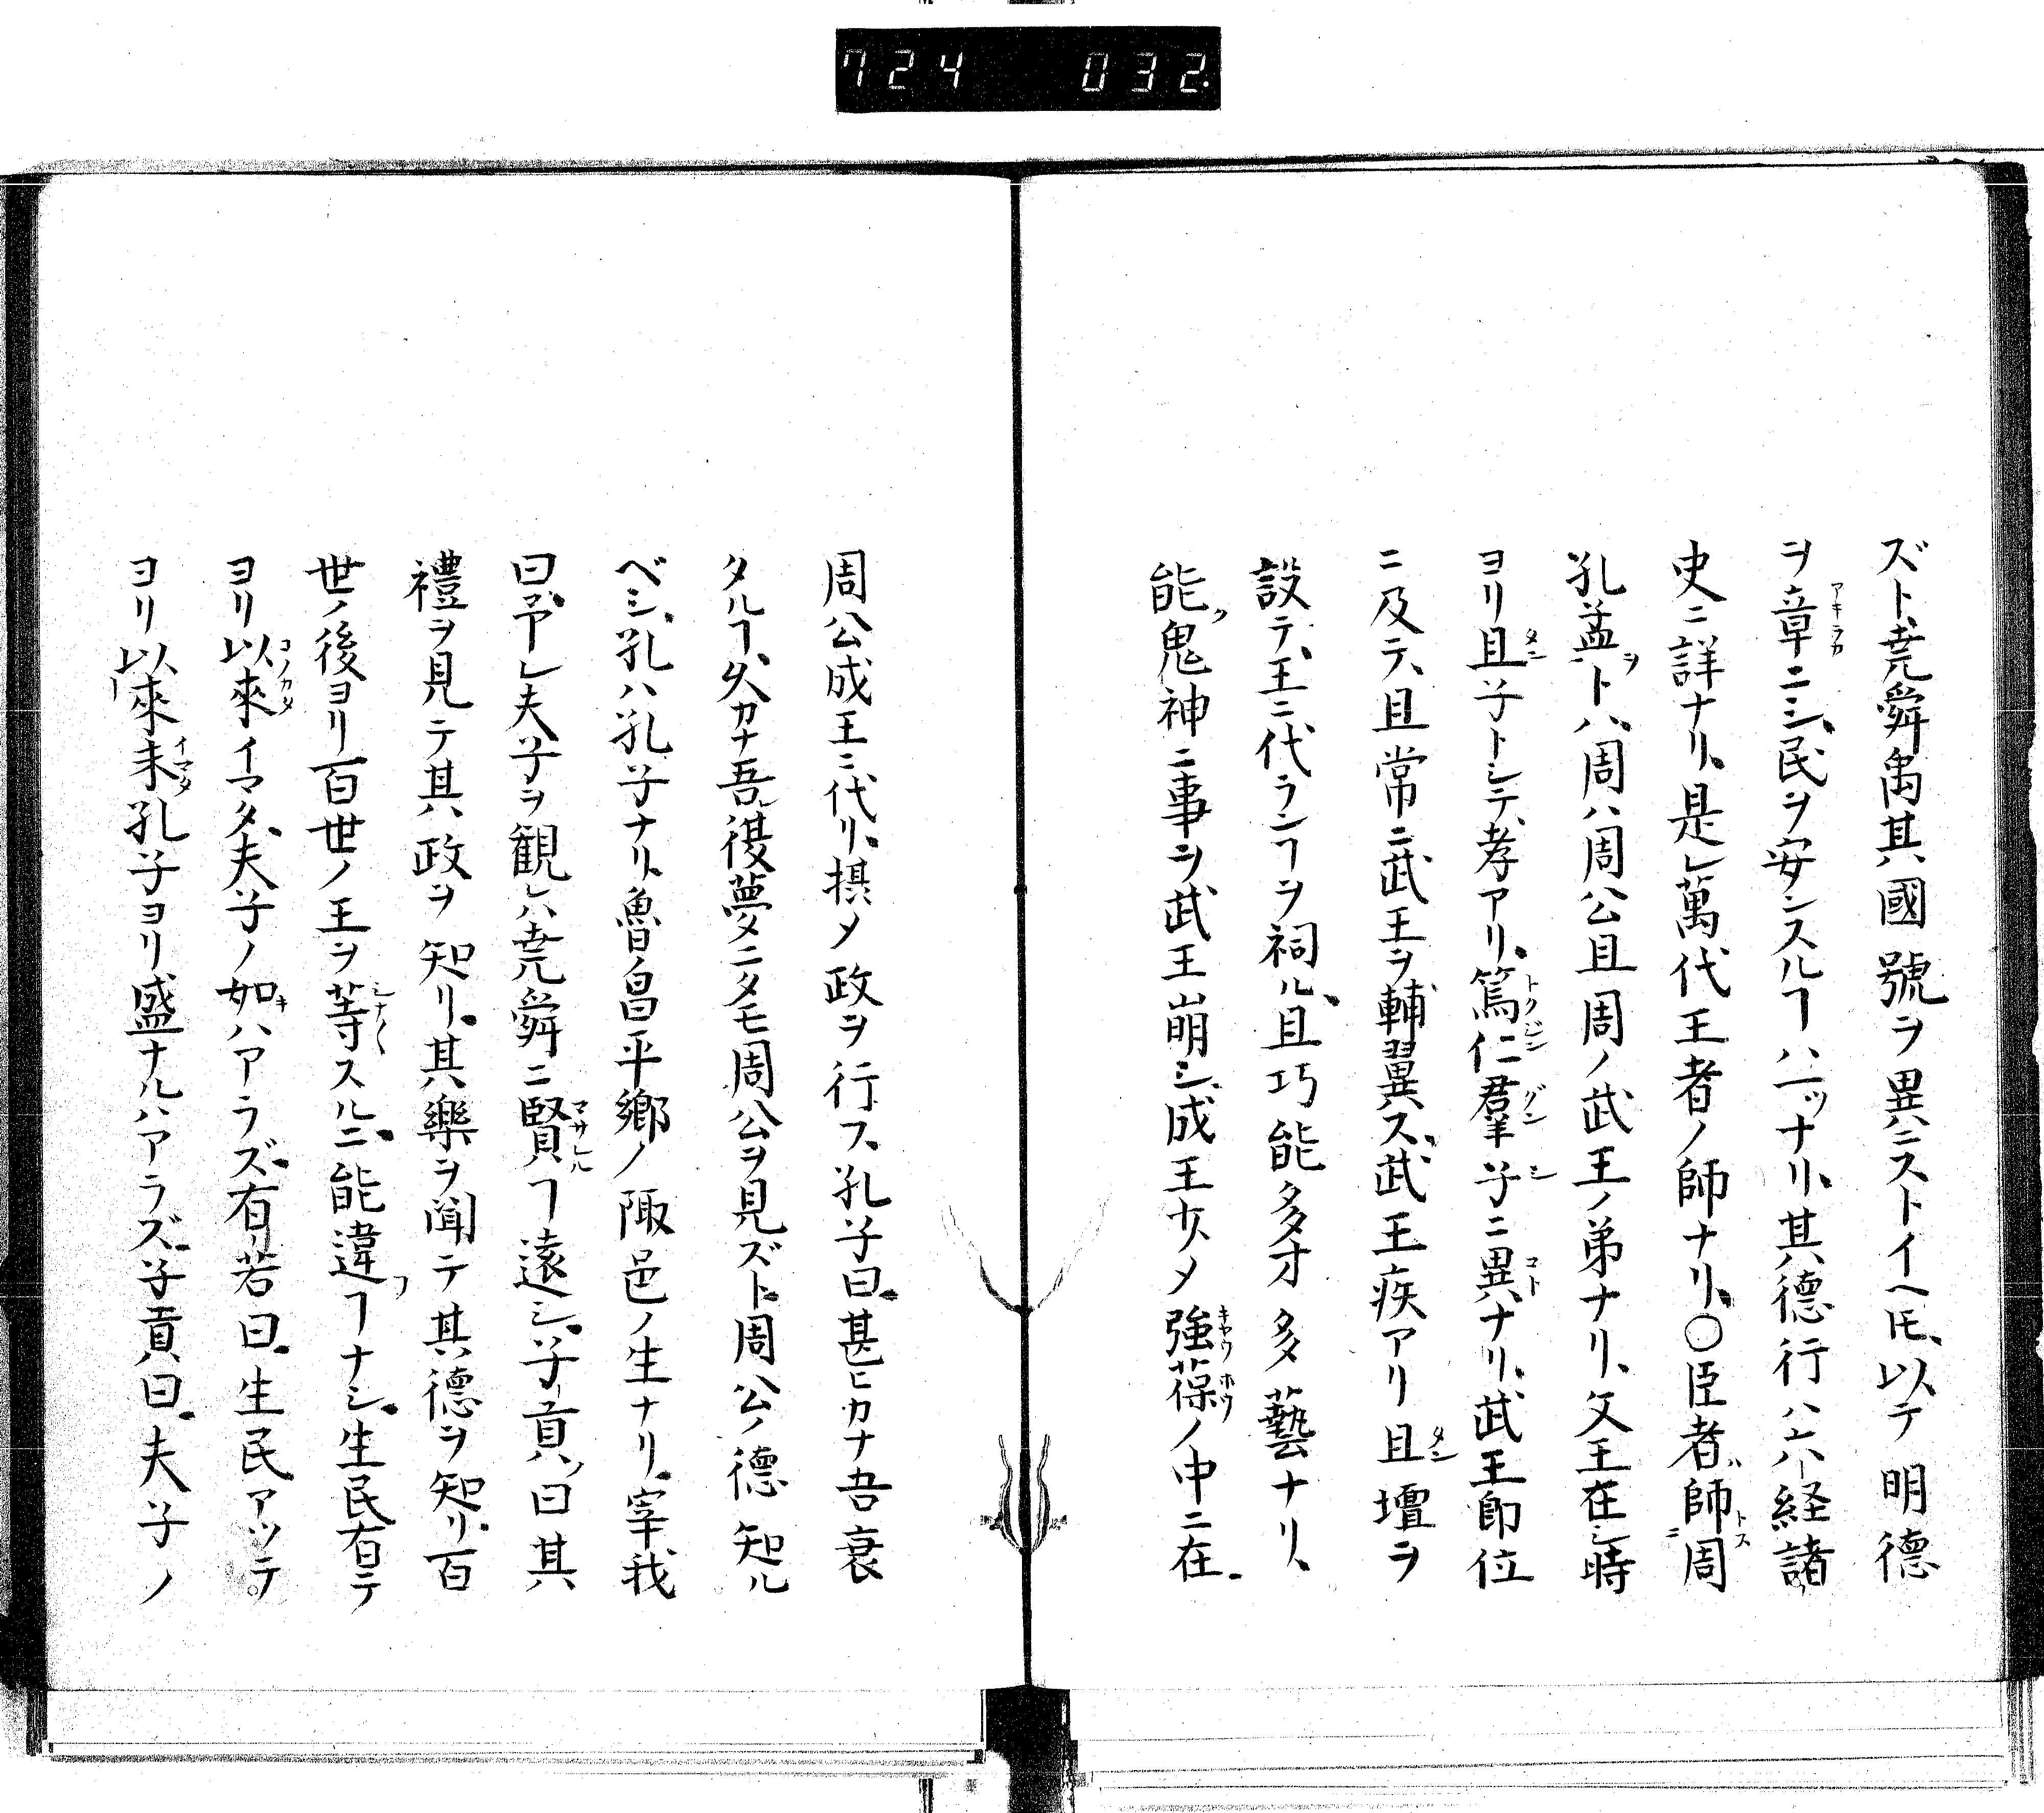 724 032
ズト、尭舜禹其國號ヲ異ニストイヘ𪜈、以テ明德
ヲ章ニシ、民ヲ安ンスルヿハ一ッナリ、其德行ハ六経諸
史ニ詳ナリ、是レ萬代王者ノ師ナリ、〇臣者師周
孔孟トハ、周ハ周公旦周ノ武王ノ弟ナリ、文王在シ時
ヨリ旦子トシテ、孝アリ、篤仁羣子ニ異ナリ、武王即位
ニ及テ、旦常ニ武王ヲ輔翼ス、武王疾アリ旦壇ヲ
設テ、王ニ代ランヿヲ祠ル、旦巧能多才多藝ナリ、
能鬼神ニ事ヲ武王崩シ、成王サメ強葆ノ中ニ在、
周公成王ニ代リ、摂メ政ヲ行ス、孔子曰、甚ヒカナ吾衰
タルヿ、久カナ吾復夢ニタモ周公ヲ見ズト、周公ノ德知ル
ベシ、孔ハ孔子ナリ、魯ノ昌平鄉ノ陬邑ノ生ナリ、宰我
曰、予レ夫子ヲ観レハ、尭舜ニ賢ヿ遠シ、子貢曰其
禮ヲ見テ其政ヲ知リ、其樂ヲ聞テ其德ヲ知リ、百
世ノ後ヨリ百世ノ王ヲ等スルニ、能違ヿナシ、生民有テ
ヨリ以來イマタ、夫子ノ如ハアラズ、有若曰、生民アツテ
ヨリ以來未孔子ヨリ盛ナルハアラズ、子貢曰、夫子ノ